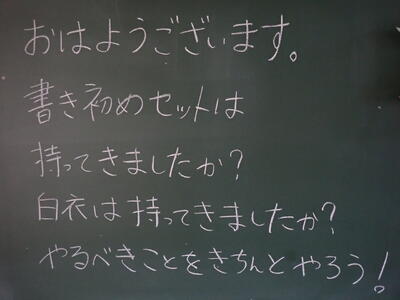 おはようございます。
書き初めセットは
持ってきましたか？
白衣は持ってきましたか？
やるべきことをきちんとやろう！